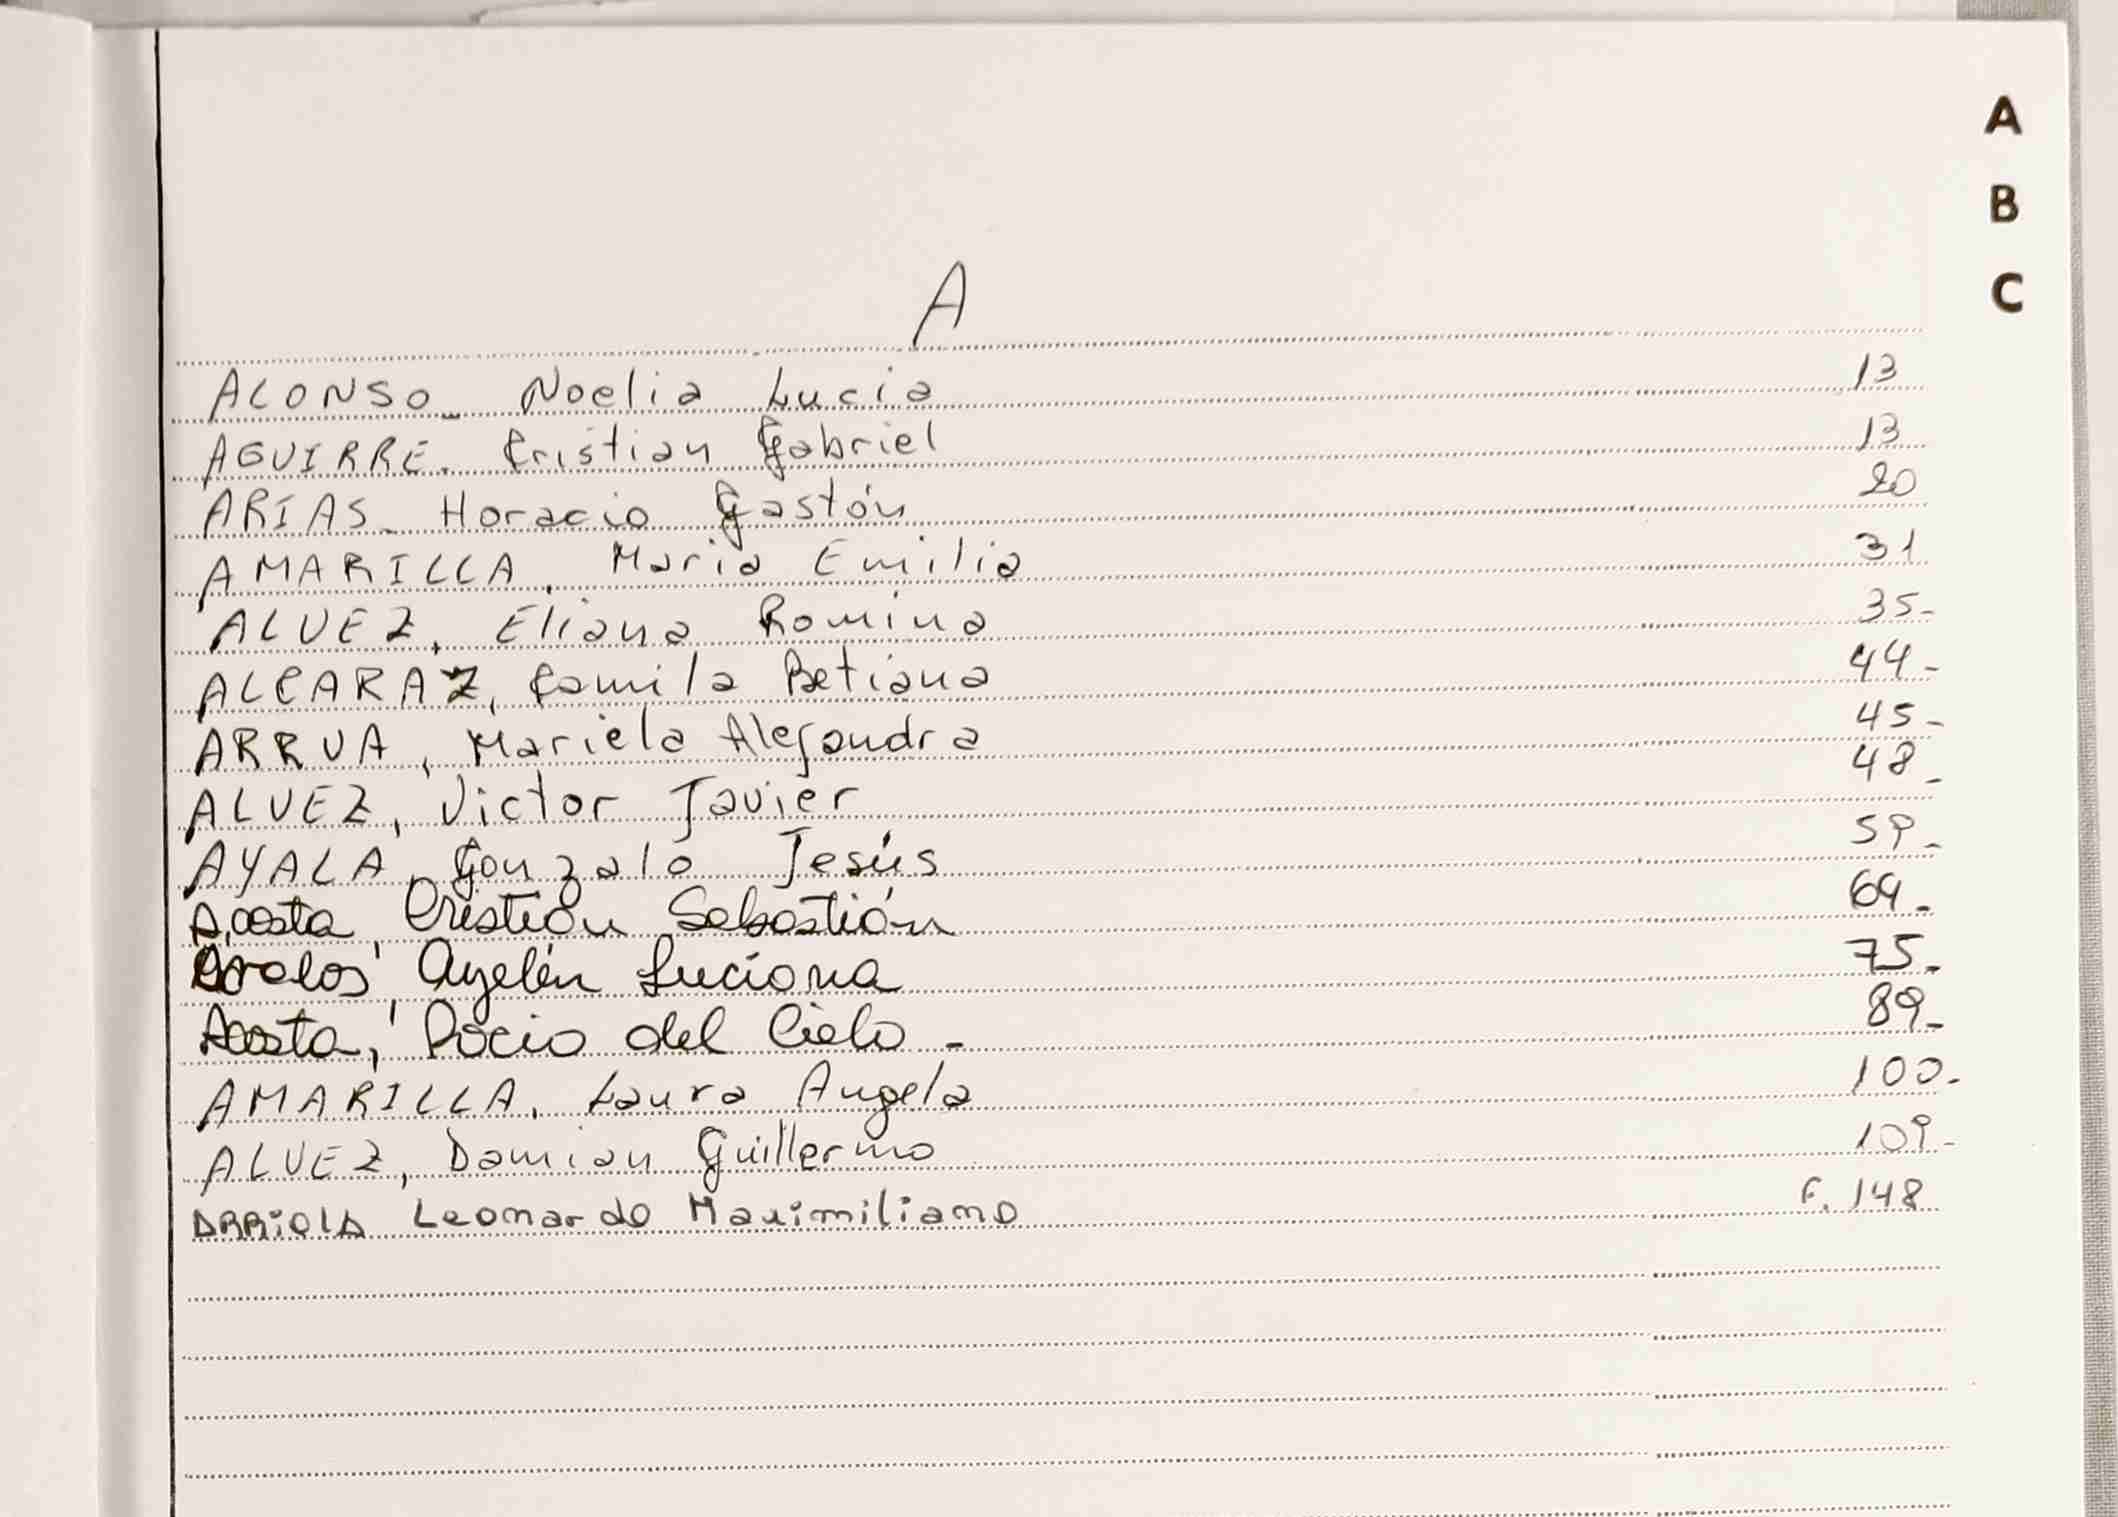 A
B
C
A
ALONSO_ Noelia Lucia 13
AGUIRRE. Cristian Gabriel 13
ARIAS_ Horacio Gastón 20
AMARILLA, Maria Emilia 31
ALVEZ, Eliana Romina 35-
ALCARAZ, Camila Betiana 44-
ARRUA, Mariela Alejandra 45-
ALVEZ, Victor Javier 48-
AYALA, Gonzalo Jesús 59-
Acosta, Cristián Sebastián 69-
Avalos, Ayelén Luciana 75-
Acosta, Rocio del Cielo - 89-
AMARILLA, Laura Angela 100-
ALVEZ, Damian Guillermo 109-
ARRIOLA Leonardo Maximiliano F. 148